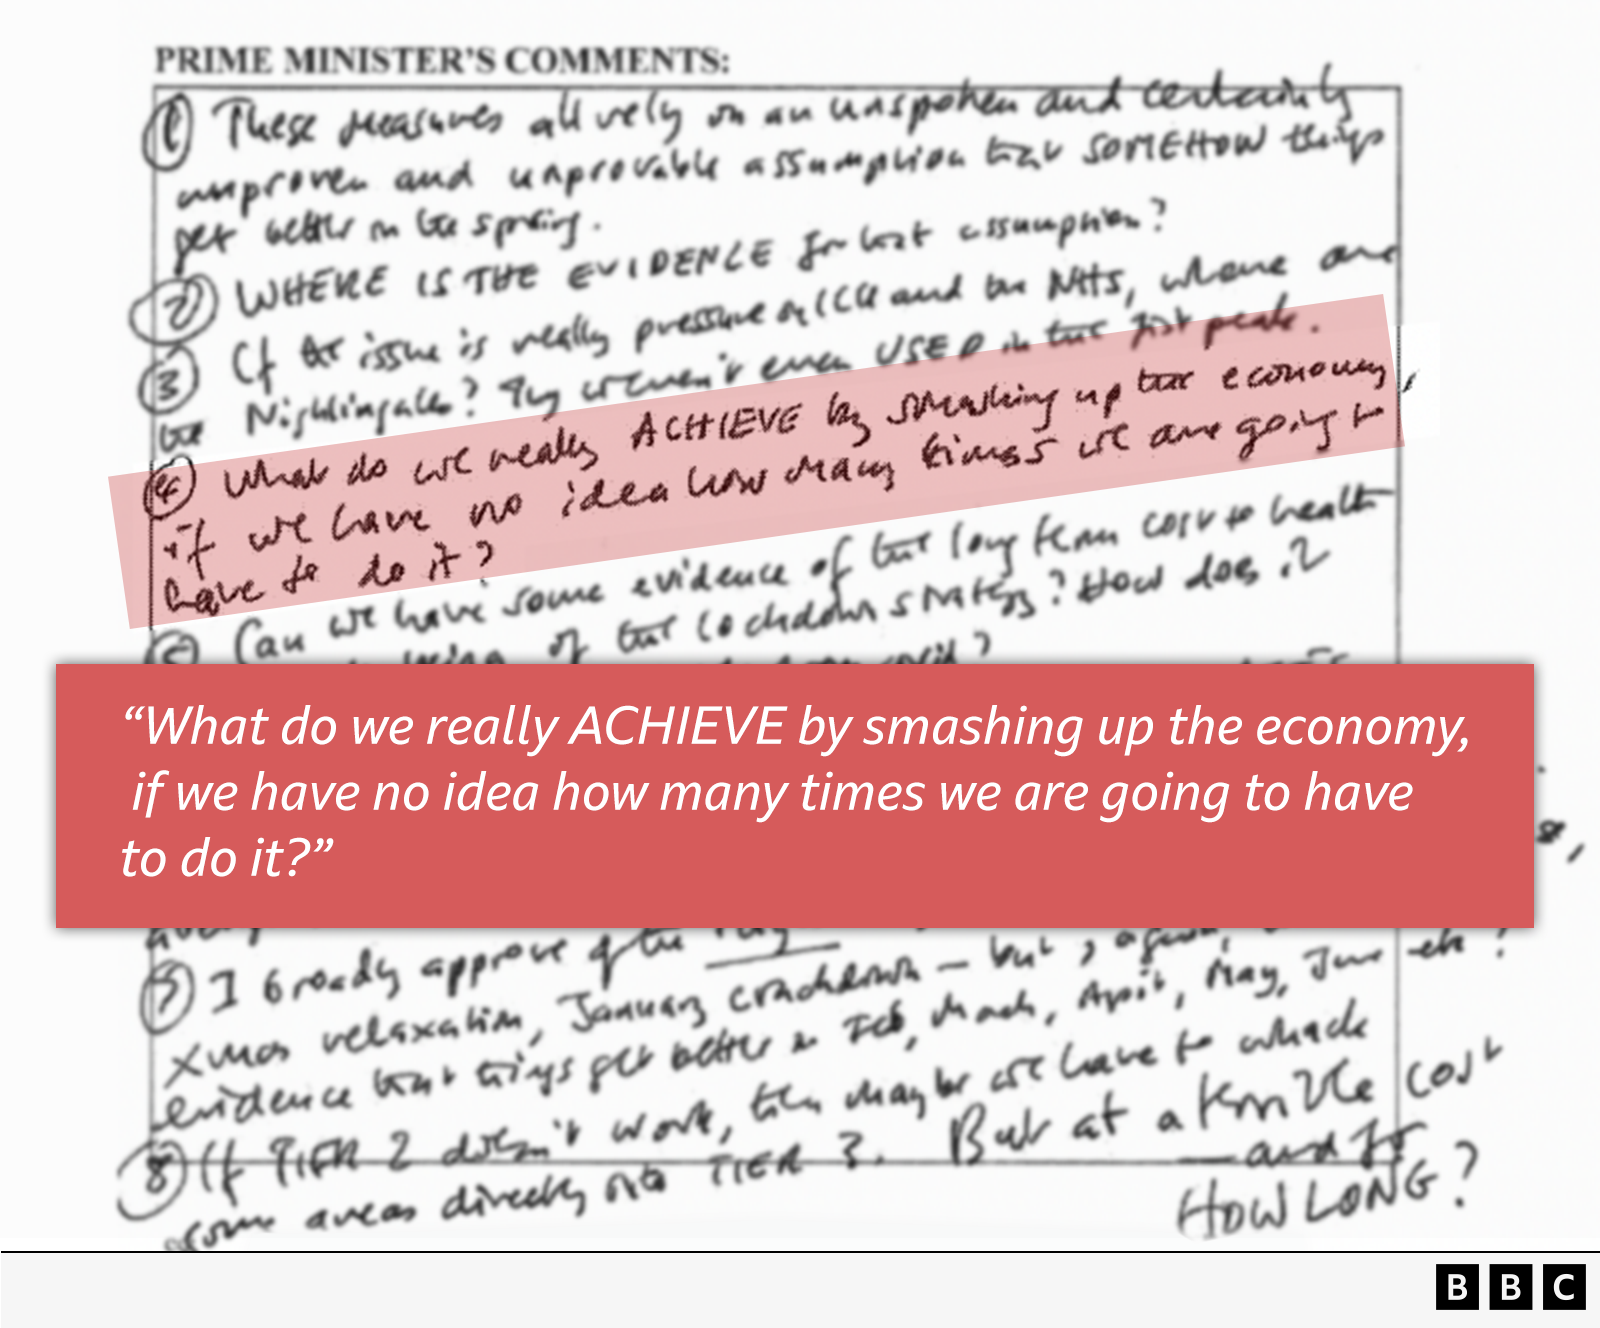 PRIME MINISTER'S COMMENTS:
① These measures all rely on an unspoken and certainly
unproven and unprovable assumption that SOMEHOW things
get better in the spring.
② WHERE IS THE EVIDENCE for that assumption?
③ If the issue is really pressure on ICU and the NHS, where are
the Nightingales? They weren't even USED in the first peak.
④ What do we really ACHIEVE by smashing up the economy,
if we have no idea how many times we are going to
have to do it?
Can we have some evidence of the long term cost to health
of the lockdown strategy? How does it
“What do we really ACHIEVE by smashing up the economy,
if we have no idea how many times we are going to have
to do it?”
⑦ I broadly approve of the
Xmas relaxation, January crackdown – but, again,
evidence that things get better in Feb, March, April, May, June etc?
⑧ If TIER 2 doesn't work, then maybe we have to whack
some areas directly into TIER 3. But at a terrible cost
— and for
HOW LONG?
BBC